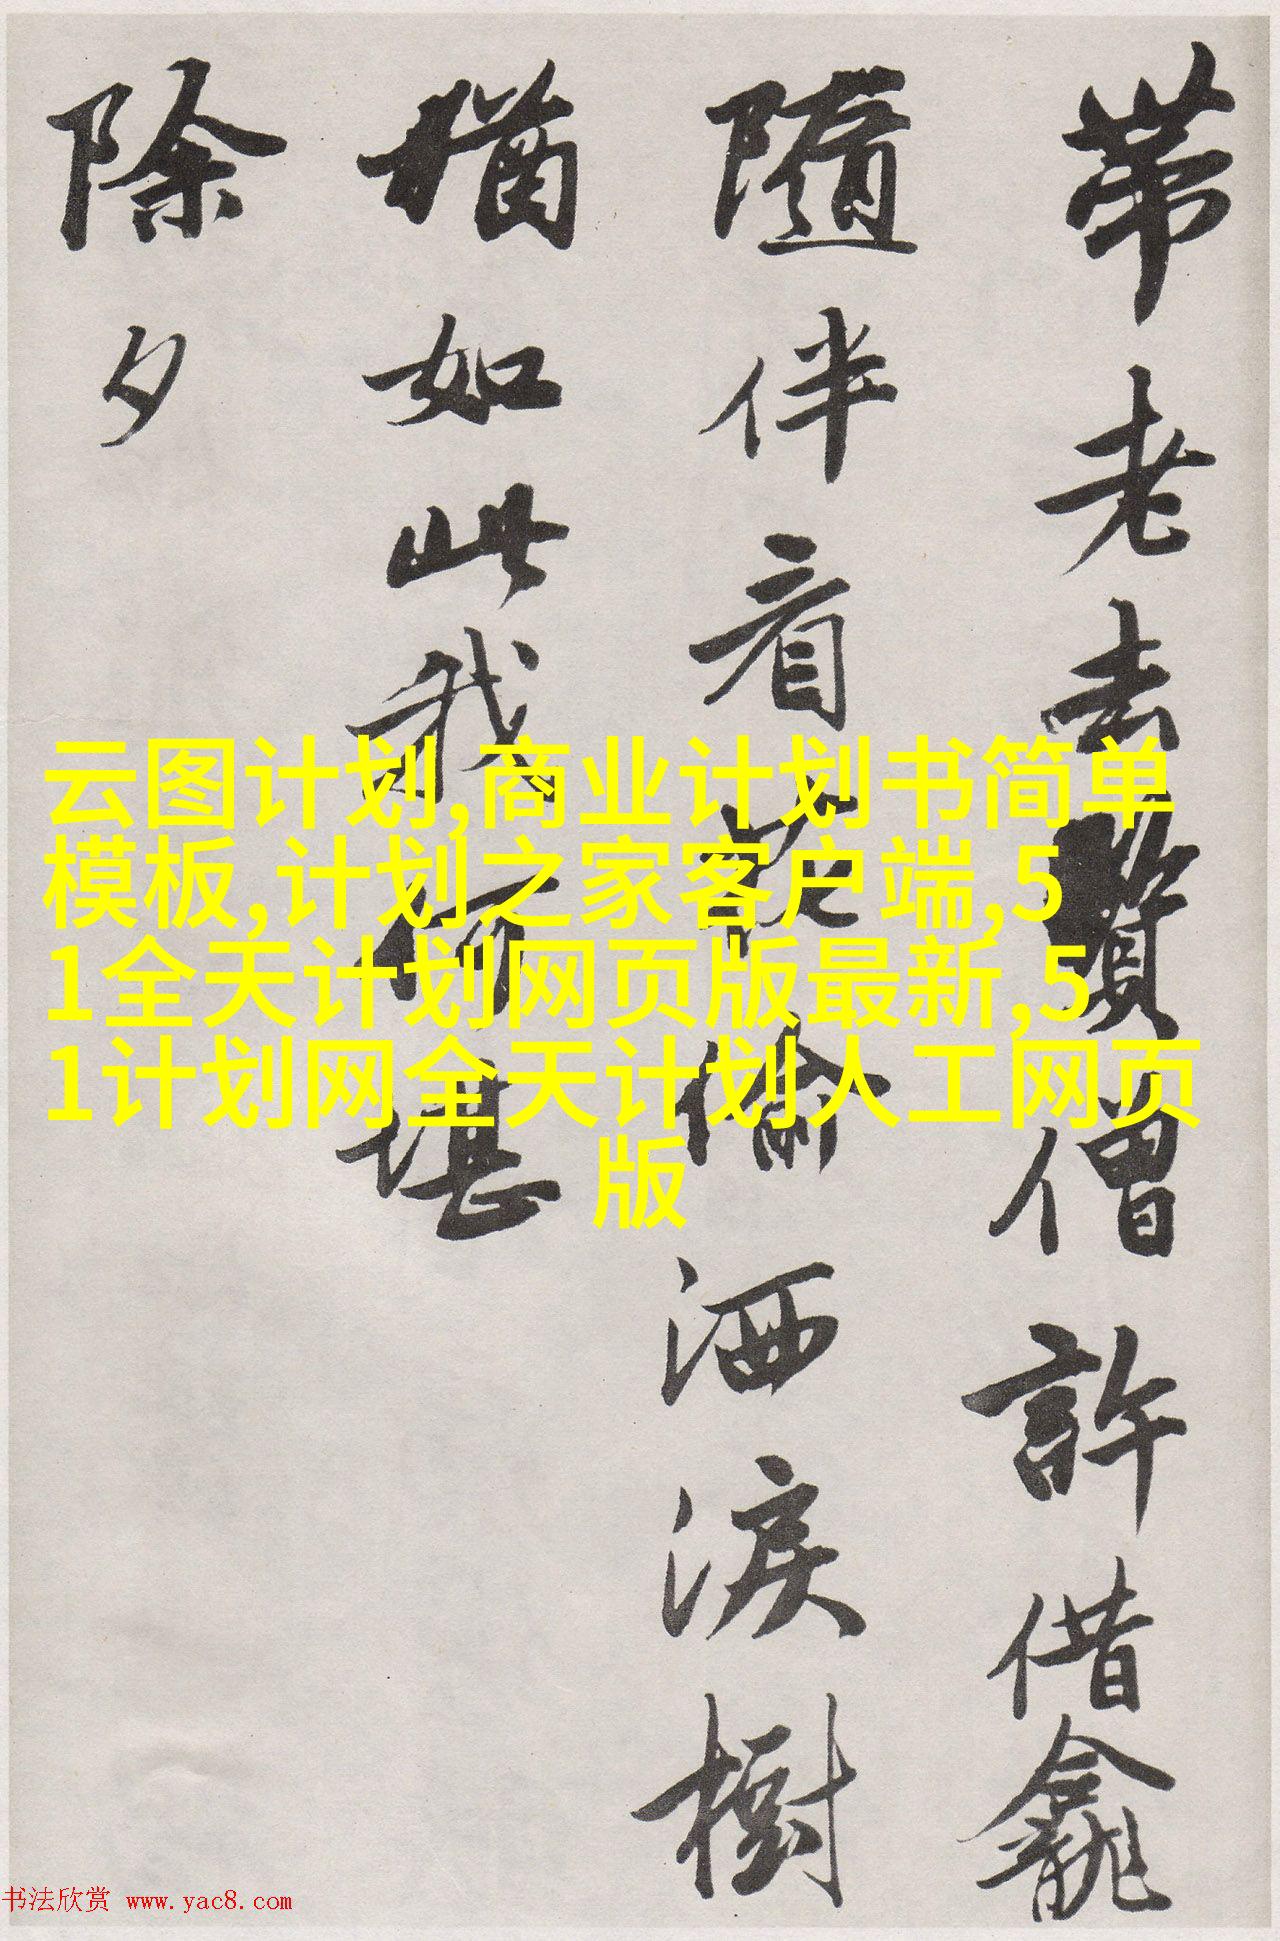 帶老去賢僧許借龕
隨伴看花偷洒淚樹
猶如此我何堪
除夕
云图计划,商业计划书简单
模板,计划之家客户端,5
1全天计划网页版最新,5
1计划网全天计划人工网页
版
书法欣赏 www.yac8.com